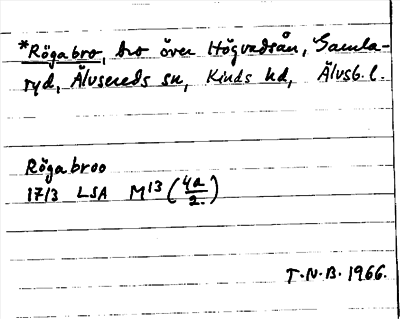 *Rögabro, bro över Högvadsån, Gamla-
ryd, Älvsereds sn, Kinds hd, Älvsb. l.
Rögabroo
1713 LSA M13 (4a/2.)
T.N.B. 1966.